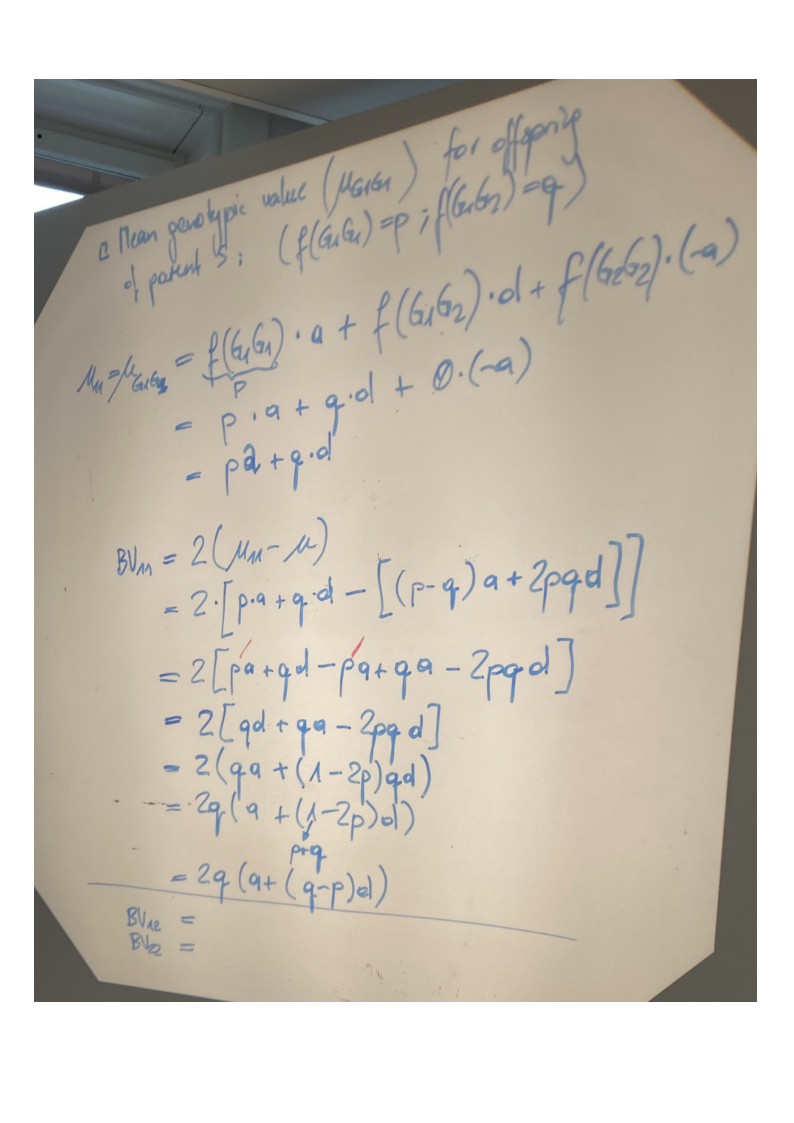 Mean genotypic value (μG1G1) for offspring
of parent S: (f(G1G1)=p ; f(G1G2)=q)
μ11 = μG1G1 = f(G1G1) · a + f(G1G2) · d + f(G2G2) · (-a)
p
= p · a + q · d + 0 · (-a)
= pa + q · d
BV11 = 2(μ11 - μ)
= 2 · [p·a + q·d - [(p-q)a + 2pqd]]
= 2[pa + qd - pa + qa - 2pqd]
= 2[qd + qa - 2pqd]
= 2(qa + (1-2p)qd)
= 2q(a + (1-2p)d)
p+q
= 2q(a + (q-p)d)
BV12 =
BV22 =